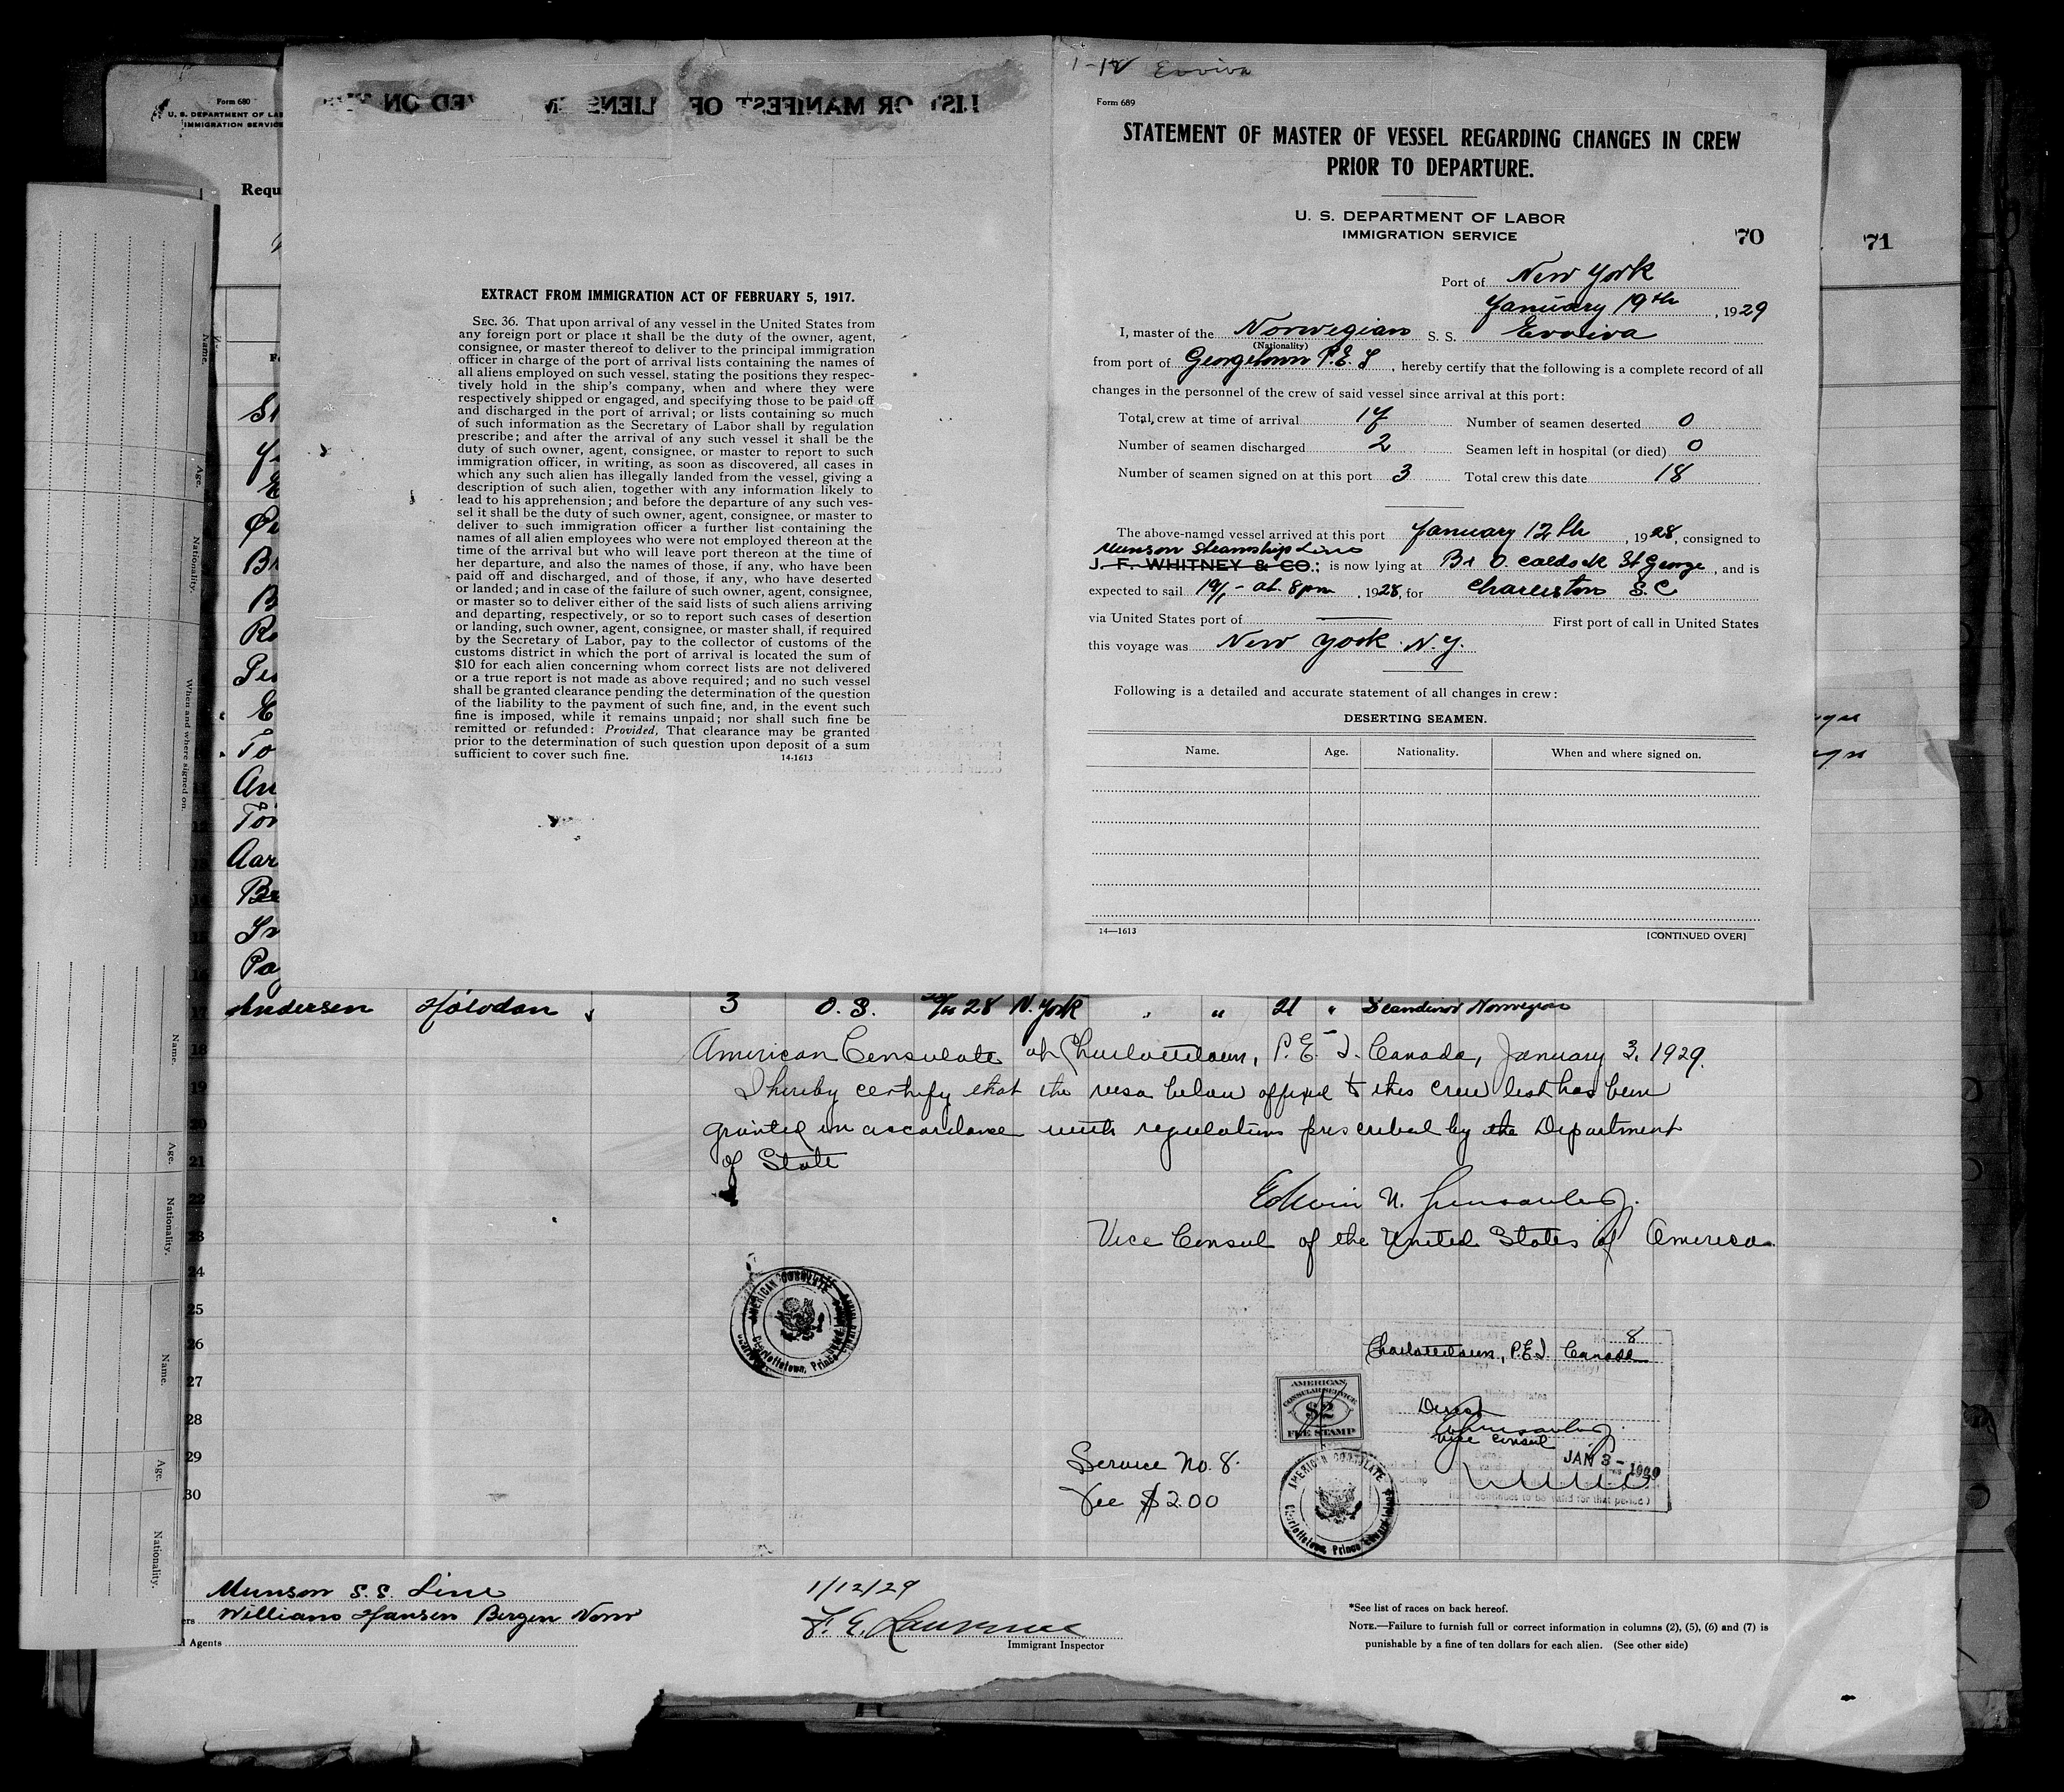 Form 680
U. S. DEPARTMENT OF LAB
IMMIGRATION SERVICE
Requ
LIST OR MANIFEST OF ALIENS
EXTRACT FROM IMMIGRATION ACT OF FEBRUARY 5, 1917.
SEC. 36. That upon arrival of any vessel in the United States from
any foreign port or place it shall be the duty of the owner, agent,
consignee, or master thereof to deliver to the principal immigration
officer in charge of the port of arrival lists containing the names of
all aliens employed on such vessel, stating the positions they respec-
tively hold in the ship's company, when and where they were
respectively shipped or engaged, and specifying those to be paid off
and discharged in the port of arrival; or lists containing so much
of such information as the Secretary of Labor shall by regulation
prescribe; and after the arrival of any such vessel it shall be the
duty of such owner, agent, consignee, or master to report to such
immigration officer, in writing, as soon as discovered, all cases in
which any such alien has illegally landed from the vessel, giving a
description of such alien, together with any information likely to
lead to his apprehension; and before the departure of any such ves-
sel it shall be the duty of such owner, agent, consignee, or master to
deliver to such immigration officer a further list containing the
names of all alien employees who were not employed thereon at the
time of the arrival but who will leave port thereon at the time of
her departure, and also the names of those, if any, who have been
paid off and discharged, and of those, if any, who have deserted
or landed; and in case of the failure of such owner, agent, consignee,
or master so to deliver either of the said lists of such aliens arriving
and departing, respectively, or so to report such cases of desertion
or landing, such owner, agent, consignee, or master shall, if required
by the Secretary of Labor, pay to the collector of customs of the
customs district in which the port of arrival is located the sum of
$10 for each alien concerning whom correct lists are not delivered
or a true report is not made as above required; and no such vessel
shall be granted clearance pending the determination of the question
of the liability to the payment of such fine, and, in the event such
fine is imposed, while it remains unpaid; nor shall such fine be
remitted or refunded: Provided, That clearance may be granted
prior to the determination of such question upon deposit of a sum
sufficient to cover such fine. 14-1613
Evviva
Form 689
STATEMENT OF MASTER OF VESSEL REGARDING CHANGES IN CREW
PRIOR TO DEPARTURE.
U. S. DEPARTMENT OF LABOR
IMMIGRATION SERVICE
70
71
Port of New York
January 19th, 1929
I, master of the Norwegian S. S. Evviva
(Nationality)
from port of Georgetown P.E.I, hereby certify that the following is a complete record of all
changes in the personnel of the crew of said vessel since arrival at this port:
Total crew at time of arrival 17 Number of seamen deserted 0
Number of seamen discharged 2 Seamen left in hospital (or died) 0
Number of seamen signed on at this port 3 Total crew this date 18
The above-named vessel arrived at this port January 12th, 1928, consigned to
Munson Steamship Line
J. F. WHITNEY & CO.; is now lying at St George, and is
expected to sail 19/1 - at 8pm, 1928, for Charleston S.C
via United States port of First port of call in United States
this voyage was New York N.Y.
Following is a detailed and accurate statement of all changes in crew:
DESERTING SEAMEN.
Name. Age. Nationality. When and where signed on.
14—1613 [CONTINUED OVER]
Name. Age. Nationality. When and where signed on.
Andersen Halvdan 3 O.S. 28 N.York " 21 " Scandinav Norwegian
18 American Consulate at Charlottetown, P.E.I. Canada, January 3, 1929.
19 I hereby certify that the visa below affixed to this crew list has been
20 granted in accordance with regulations prescribed by the Department
21 of State
22 Edwin N.
23 Vice Consul of the United States of America
24
25
26
27
28
29
30
AMERICAN CONSULATE
Charlottetown, Prince Edward Island
8
Charlottetown, P.E.I. Canada
AMERICAN
CONSULAR SERVICE
$2
FEE STAMP
Vice Consul
JAN 3 - 1929
(continues to be valid for that period)
AMERICAN CONSULATE
Charlottetown, Prince Edward Island
Service No. 8.
Fee $2.00
Name. Age. Nationality. Name. Age. Nationality.
Munson S.S. Line
Williams Hansen Bergen Norw
Agents
1/12/29
F. E. Lawrence
Immigrant Inspector
*See list of races on back hereof.
NOTE.—Failure to furnish full or correct information in columns (2), (5), (6) and (7) is
punishable by a fine of ten dollars for each alien. (See other side)